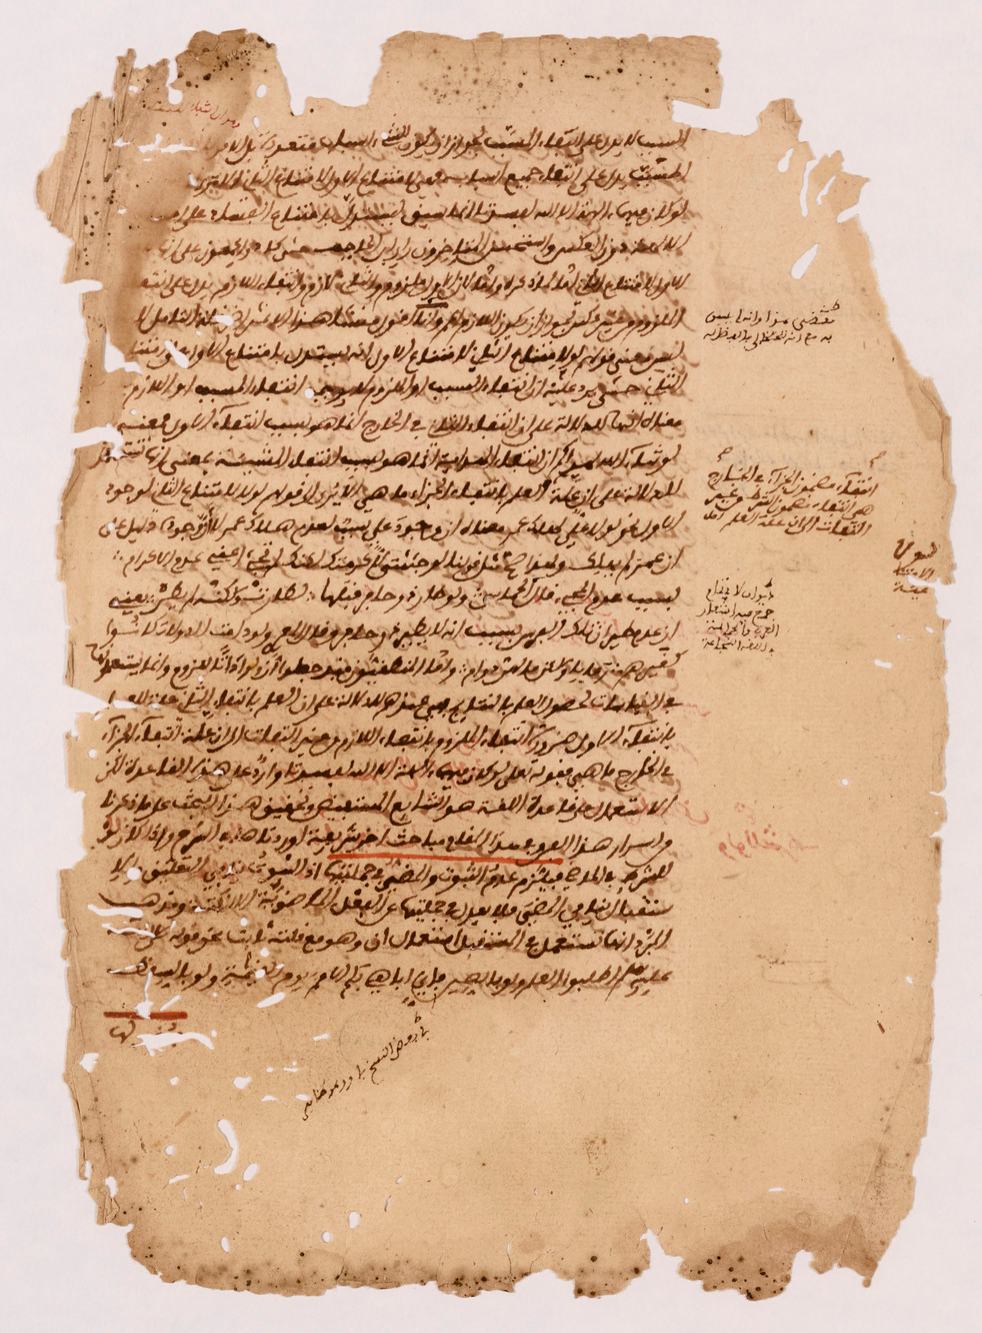 السبب لا يدل على انتفاء المسبب لجواز ان يكون للشيء اسباب متعددة بل الامر
المسبب يدل على انتفاء جميع اسبابه فهي لامتناع الاول لامتناع الثاني الا ترى
لو كان فيهما الهة الا الله لفسدتا انما سيق ليستدل بامتناع الفساد على
الالهة دون العكس واستحسن المتاخرون راي ابن الحاجب حتى كادوا يجمعون على انها
الاول لامتناع الثاني اما لما ذكره واما لان الاول ملزوم والثاني لازم وانتفاء اللازم يدل على انتفا
الملزوم من غير عكس لجواز ان يكون اللازم اعم وانا اقول منشا هذا الاعتراض قلة التامل لا
ليس معنى قولهم لو لامتناع الثاني لامتناع الاول انه يستدل بامتناع الاول على امتناع
الثاني حتى يرد عليه ان انتفاء السبب او الملزوم لا يوجب انتفاء المسبب او اللازم
معناه انها للدلالة على ان انتفاء الثاني في الخارج انما هو بسبب انتفاء الاول فمعنى
لو شاء الله لهداكم ان انتفاء الهداية انما هو بسبب انتفاء المشيئة يعني انها تستعمل
للدلالة على ان علة العلم بانتفاء الجزاء ما هي الا ترى ان قولهم لولا لامتناع الثاني لوجود
الاول نحو لولا علي لهلك عمر معناه ان وجود علي سبب لعدم هلاك عمر لا ان وجوده دليل على
ان عمر لم يهلك ولهذا صح مثل قولنا لو جئتني لاكرمتك لكنك لم تجئ اعني عدم الاكرام
بسبب عدم المجيء قال الحماسي ولو طار ذو حافر قبلها لطارت ولكنه لم يطر يعني
ان عدم طيران تلك الفرس بسبب انه لم يطر ذو حافر وقال المعري ولو دامت الدولات كانوا
كغيرهم رعايا ولكن ما لهن دوام واما المنطقيون فقد جعلوا ان ولو اداة للزوم وانما يستعملونها
في القياسات لحصول العلم بالنتايج فهي عندهم للدلالة على ان العلم بانتفاء الثاني علة للعلم
بانتفاء الاول ضرورة انتفاء الملزوم بانتفاء اللازم من غير التفات الى ان علة انتفاء الجزاء
في الخارج ما هي فقوله تعلى لو كان فيهما الهة الا الله لفسدتا وارد على هذه القاعدة لكن
الاستعمال على قاعدة اللغة هو الشايع المستفيض وتحقيق هذا البحث على ما ذكرنا
من اسرار هذا الفن وفي هذا المقام مباحث اخرى شريفة اوردناها في الشرح واذا كان لو
للشرط في الماضي فيلزم عدم الثبوت والمضي في جملتيها اذ الثبوت ينافي التعليق والا
ستقبال ينافي المضي فلا يعدل في جملتيها عن الفعلية الماضوية الا لنكتة ومذهب
المبرد انها تستعمل في المستقبل استعمال ان وهو مع قلته ثابت نحو قوله
عليه السلم اطلبوا العلم ولو بالصين واني اباهي بكم الامم يوم القيمة ولو بالسقط
انتفاء مضمون الجزاء في الخارج
هي انتفاء مضمون الشرط من غير
التفات الى ان علة العلم